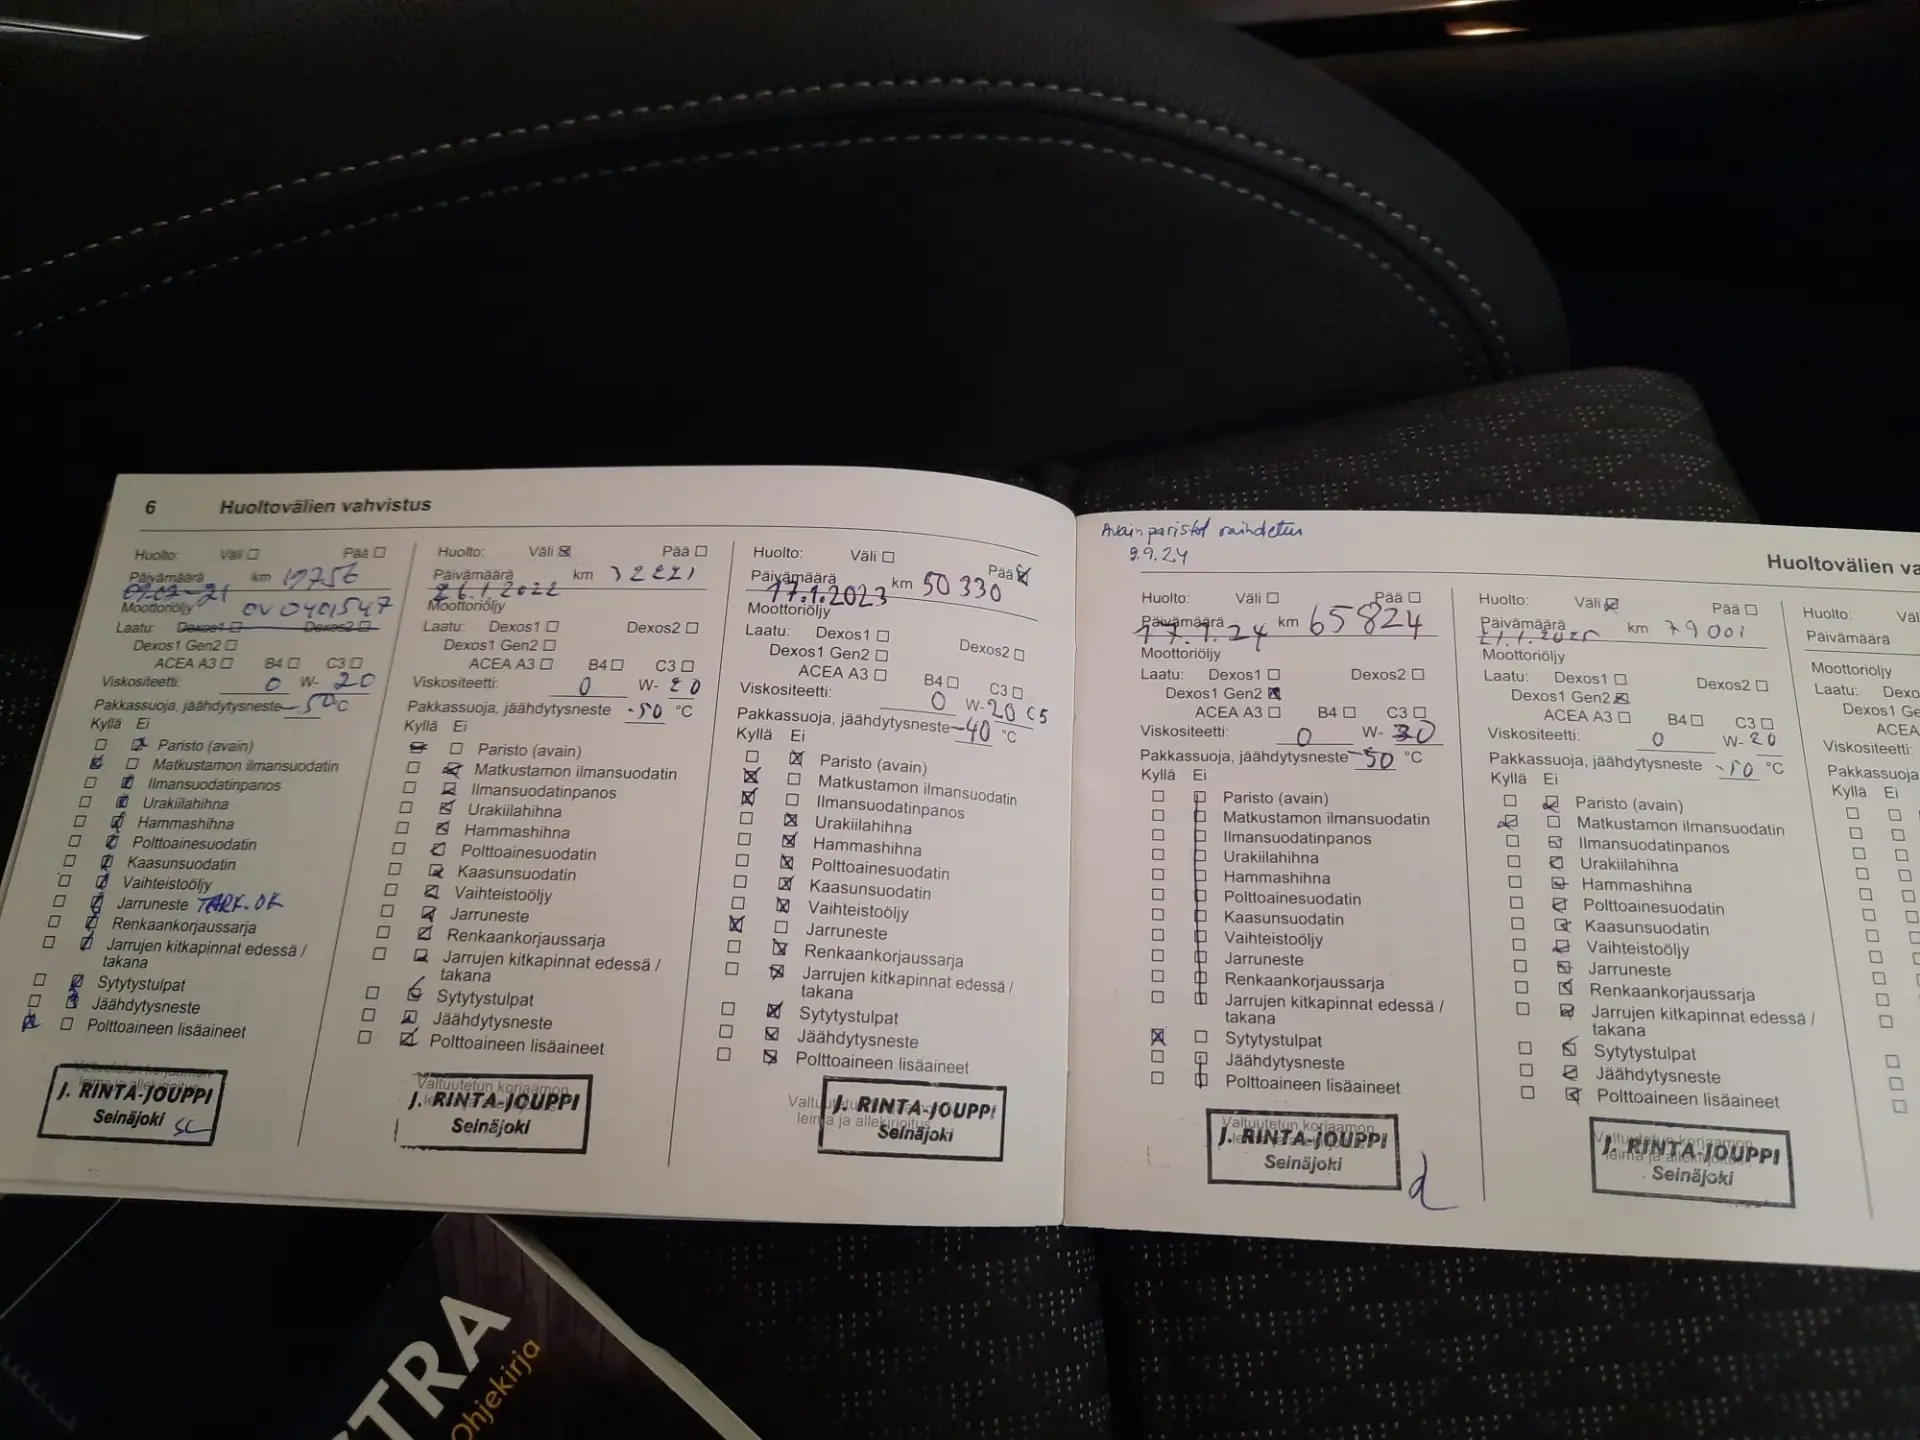 6 Huoltovälien vahvistus
Huolto: Väli Pää
Päivämäärä km 19756
Moottoriöljy OV0401547
Laatu: Dexos1 Dexos2
Dexos1 Gen2
ACEA A3 B4 C3
Viskositeetti: 0 W- 20
Pakkassuoja, jäähdytysneste -50 °C
Kyllä Ei
Paristo (avain)
Matkustamon ilmansuodatin
Ilmansuodatinpanos
Urakiilahihna
Hammashihna
Polttoainesuodatin
Kaasunsuodatin
Vaihteistoöljy
Jarruneste TARK.OK
Renkaankorjaussarja
Jarrujen kitkapinnat edessä /
takana
Sytytystulpat
Jäähdytysneste
Polttoaineen lisäaineet
J. RINTA-JOUPPI
Seinäjoki
Huolto: Väli Pää
Päivämäärä km
26.1.2022
Moottoriöljy
Laatu: Dexos1 Dexos2
Dexos1 Gen2
ACEA A3 B4 C3
Viskositeetti: 0 W- 20
Pakkassuoja, jäähdytysneste -50 °C
Kyllä Ei
Paristo (avain)
Matkustamon ilmansuodatin
Ilmansuodatinpanos
Urakiilahihna
Hammashihna
Polttoainesuodatin
Kaasunsuodatin
Vaihteistoöljy
Jarruneste
Renkaankorjaussarja
Jarrujen kitkapinnat edessä /
takana
Sytytystulpat
Jäähdytysneste
Polttoaineen lisäaineet
Valtuutetun korjaamon
J. RINTA-JOUPPI
Seinäjoki
Huolto: Väli Pää
Päivämäärä km 50 330
17.1.2023
Moottoriöljy
Laatu: Dexos1 Dexos2
Dexos1 Gen2
ACEA A3 B4 C3
Viskositeetti: 0 W-20 C5
Pakkassuoja, jäähdytysneste -40 °C
Kyllä Ei
Paristo (avain)
Matkustamon ilmansuodatin
Ilmansuodatinpanos
Urakiilahihna
Hammashihna
Polttoainesuodatin
Kaasunsuodatin
Vaihteistoöljy
Jarruneste
Renkaankorjaussarja
Jarrujen kitkapinnat edessä /
takana
Sytytystulpat
Jäähdytysneste
Polttoaineen lisäaineet
J. RINTA-JOUPPI
leima ja allekirjoitus
Seinäjoki
Avain paristot
9.9.24
Huoltovälien va
Huolto: Väli Pää
Päivämäärä km 65824
17.1.24
Moottoriöljy
Laatu: Dexos1 Dexos2
Dexos1 Gen2
ACEA A3 B4 C3
Viskositeetti: 0 W- 30
Pakkassuoja, jäähdytysneste -50 °C
Kyllä Ei
Paristo (avain)
Matkustamon ilmansuodatin
Ilmansuodatinpanos
Urakiilahihna
Hammashihna
Polttoainesuodatin
Kaasunsuodatin
Vaihteistoöljy
Jarruneste
Renkaankorjaussarja
Jarrujen kitkapinnat edessä /
takana
Sytytystulpat
Jäähdytysneste
Polttoaineen lisäaineet
Valtuutetun korjaamon
J. RINTA-JOUPPI
Seinäjoki
Huolto: Väli Pää
Päivämäärä km 79001
Moottoriöljy
Laatu: Dexos1 Dexos2
Dexos1 Gen2
ACEA A3 B4 C3
Viskositeetti: 0 W- 20
Pakkassuoja, jäähdytysneste -50 °C
Kyllä Ei
Paristo (avain)
Matkustamon ilmansuodatin
Ilmansuodatinpanos
Urakiilahihna
Hammashihna
Polttoainesuodatin
Kaasunsuodatin
Vaihteistoöljy
Jarruneste
Renkaankorjaussarja
Jarrujen kitkapinnat edessä /
takana
Sytytystulpat
Jäähdytysneste
Polttoaineen lisäaineet
J. RINTA-JOUPPI
Seinäjoki
Huolto: Väl
Päivämäärä
Moottoriöljy
Laatu: Dexo
Dexos1 Ge
ACEA
Viskositeetti:
Pakkassuoja
Kyllä Ei
TRA
Ohjekirja